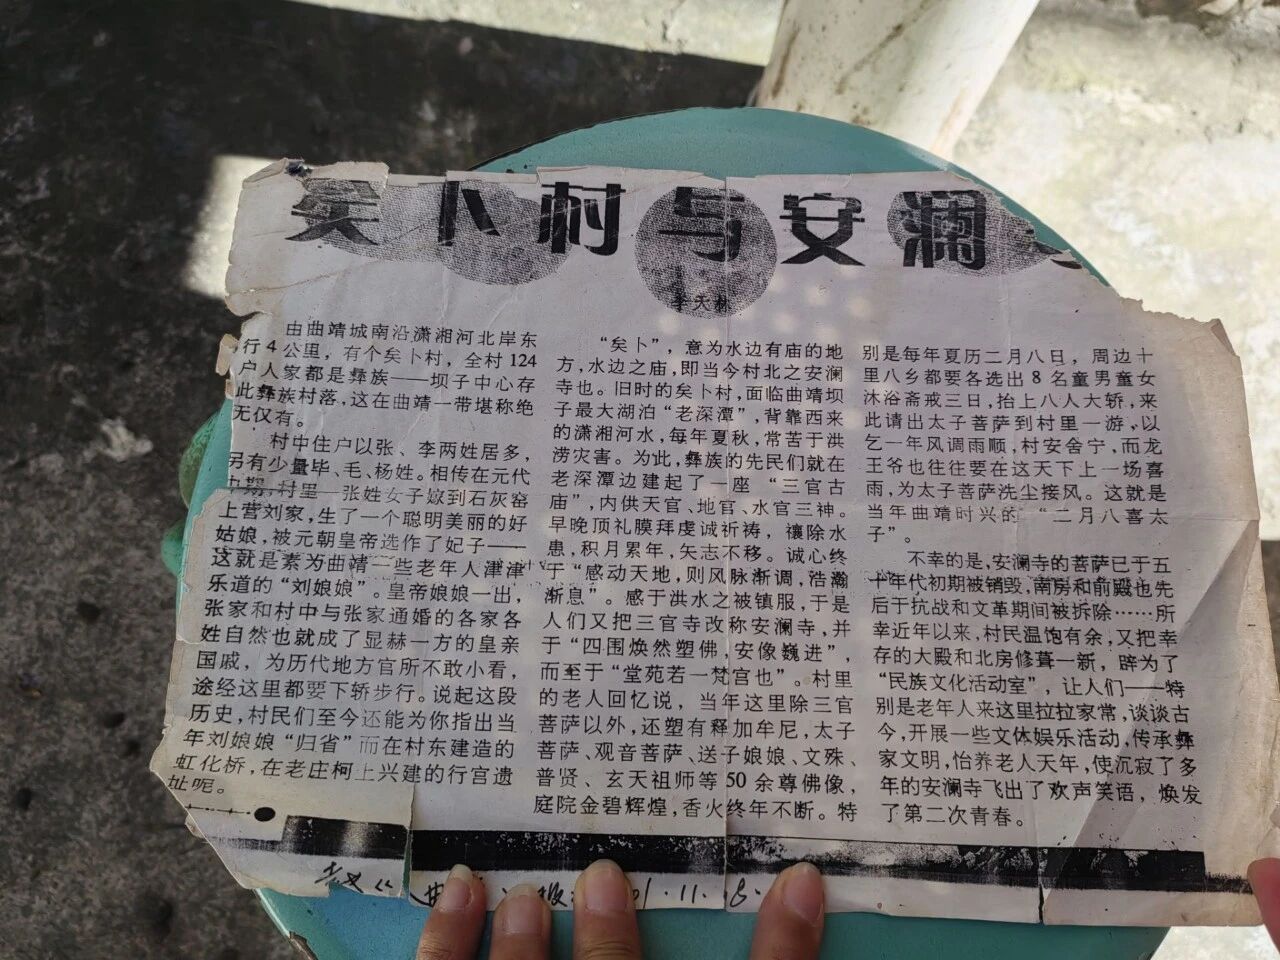 矣卜村与安澜
李天林
由曲靖城南沿潇湘河北岸东
行4公里，有个矣卜村，全村124
户人家都是彝族——坝子中心存
此彝族村落，这在曲靖一带堪称绝
无仅有。
村中住户以张、李两姓居多，
另有少量毕、毛、杨姓。相传在元代
中期，村里一张姓女子嫁到石灰窑
上营刘家，生了一个聪明美丽的好
姑娘，被元朝皇帝选作了妃子——
这就是素为曲靖一些老年人津津
乐道的“刘娘娘”。皇帝娘娘一出，
张家和村中与张家通婚的各家各
姓自然也就成了显赫一方的皇亲
国戚，为历代地方官所不敢小看，
途经这里都要下轿步行。说起这段
历史，村民们至今还能为你指出当
年刘娘娘“归省”而在村东建造的
虹化桥，在老庄柯上兴建的行宫遗
址呢。
“矣卜”，意为水边有庙的地
方，水边之庙，即当今村北之安澜
寺也。旧时的矣卜村，面临曲靖坝
子最大湖泊“老深潭”，背靠西来
的潇湘河水，每年夏秋，常苦于洪
涝灾害。为此，彝族的先民们就在
老深潭边建起了一座“三官古
庙”，内供天官、地官、水官三神。
早晚顶礼膜拜虔诚祈祷，禳除水
患，积月累年，矢志不移。诚心终
于“感动天地，则风脉渐调，浩瀚
渐息”。感于洪水之被镇服，于是
人们又把三官寺改称安澜寺，并
于“四围焕然塑佛，安像巍进”，
而至于“堂苑若一梵宫也”。村里
的老人回忆说，当年这里除三官
菩萨以外，还塑有释加牟尼，太子
菩萨、观音菩萨、送子娘娘、文殊、
普贤、玄天祖师等50余尊佛像，
庭院金碧辉煌，香火终年不断。特
别是每年夏历二月八日，周边十
里八乡都要各选出8名童男童女
沐浴斋戒三日，抬上八人大轿，来
此请出太子菩萨到村里一游，以
乞一年风调雨顺，村安舍宁，而龙
王爷也往往要在这天下上一场喜
雨，为太子菩萨洗尘接风。这就是
当年曲靖时兴的“二月八喜太
子”。
不幸的是，安澜寺的菩萨已于五
十年代初期被销毁，南房和前殿也先
后于抗战和文革期间被拆除……所
幸近年以来，村民温饱有余，又把幸
存的大殿和北房修葺一新，辟为了
“民族文化活动室”，让人们——特
别是老年人来这里拉拉家常，谈谈古
今，开展一些文体娱乐活动，传承彝
家文明，怡养老人天年，使沉寂了多
年的安澜寺飞出了欢声笑语，焕发
了第二次青春。